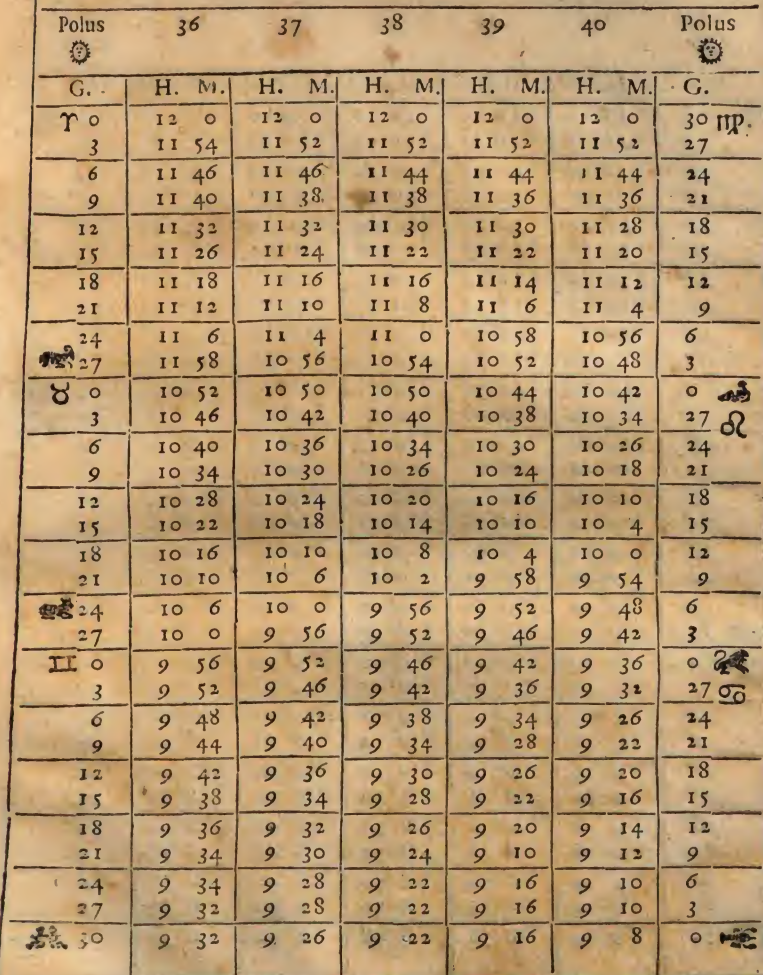 Polus 36 37 38 39 40 Polus
G. H. M. H. M. H. M. H. M. H. M. G.
♈ 0 12 0 12 0 12 0 12 0 12 0 30 ♍
3 11 54 11 52 11 52 11 52 11 52 27
6 11 46 11 46 11 44 11 44 11 44 24
9 11 40 11 38 11 38 11 36 11 36 21
12 11 32 11 32 11 30 11 30 11 28 18
15 11 26 11 24 11 22 11 22 11 20 15
18 11 18 11 16 11 16 11 14 11 12 12
21 11 12 11 10 11 8 11 6 11 4 9
24 11 6 11 4 11 0 10 58 10 56 6
27 11 58 10 56 10 54 10 52 10 48 3
♉ 0 10 52 10 50 10 50 10 44 10 42 0
3 10 46 10 42 10 40 10 38 10 34 27 ♌
6 10 40 10 36 10 34 10 30 10 26 24
9 10 34 10 30 10 26 10 24 10 18 21
12 10 28 10 24 10 20 10 16 10 10 18
15 10 22 10 18 10 14 10 10 10 4 15
18 10 16 10 10 10 8 10 4 10 0 12
21 10 10 10 6 10 2 9 58 9 54 9
24 10 6 10 0 9 56 9 52 9 48 6
27 10 0 9 56 9 52 9 46 9 42 3
♊ 0 9 56 9 52 9 46 9 42 9 36 0
3 9 52 9 46 9 42 9 36 9 32 27 ♋
6 9 48 9 42 9 38 9 34 9 26 24
9 9 44 9 40 9 34 9 28 9 22 21
12 9 42 9 36 9 30 9 26 9 20 18
15 9 38 9 34 9 28 9 22 9 16 15
18 9 36 9 32 9 26 9 20 9 14 12
21 9 34 9 30 9 24 9 10 9 12 9
24 9 34 9 28 9 22 9 16 9 10 6
27 9 32 9 28 9 22 9 16 9 10 3
30 9 32 9. 26 9 22 9 16 9 8 0